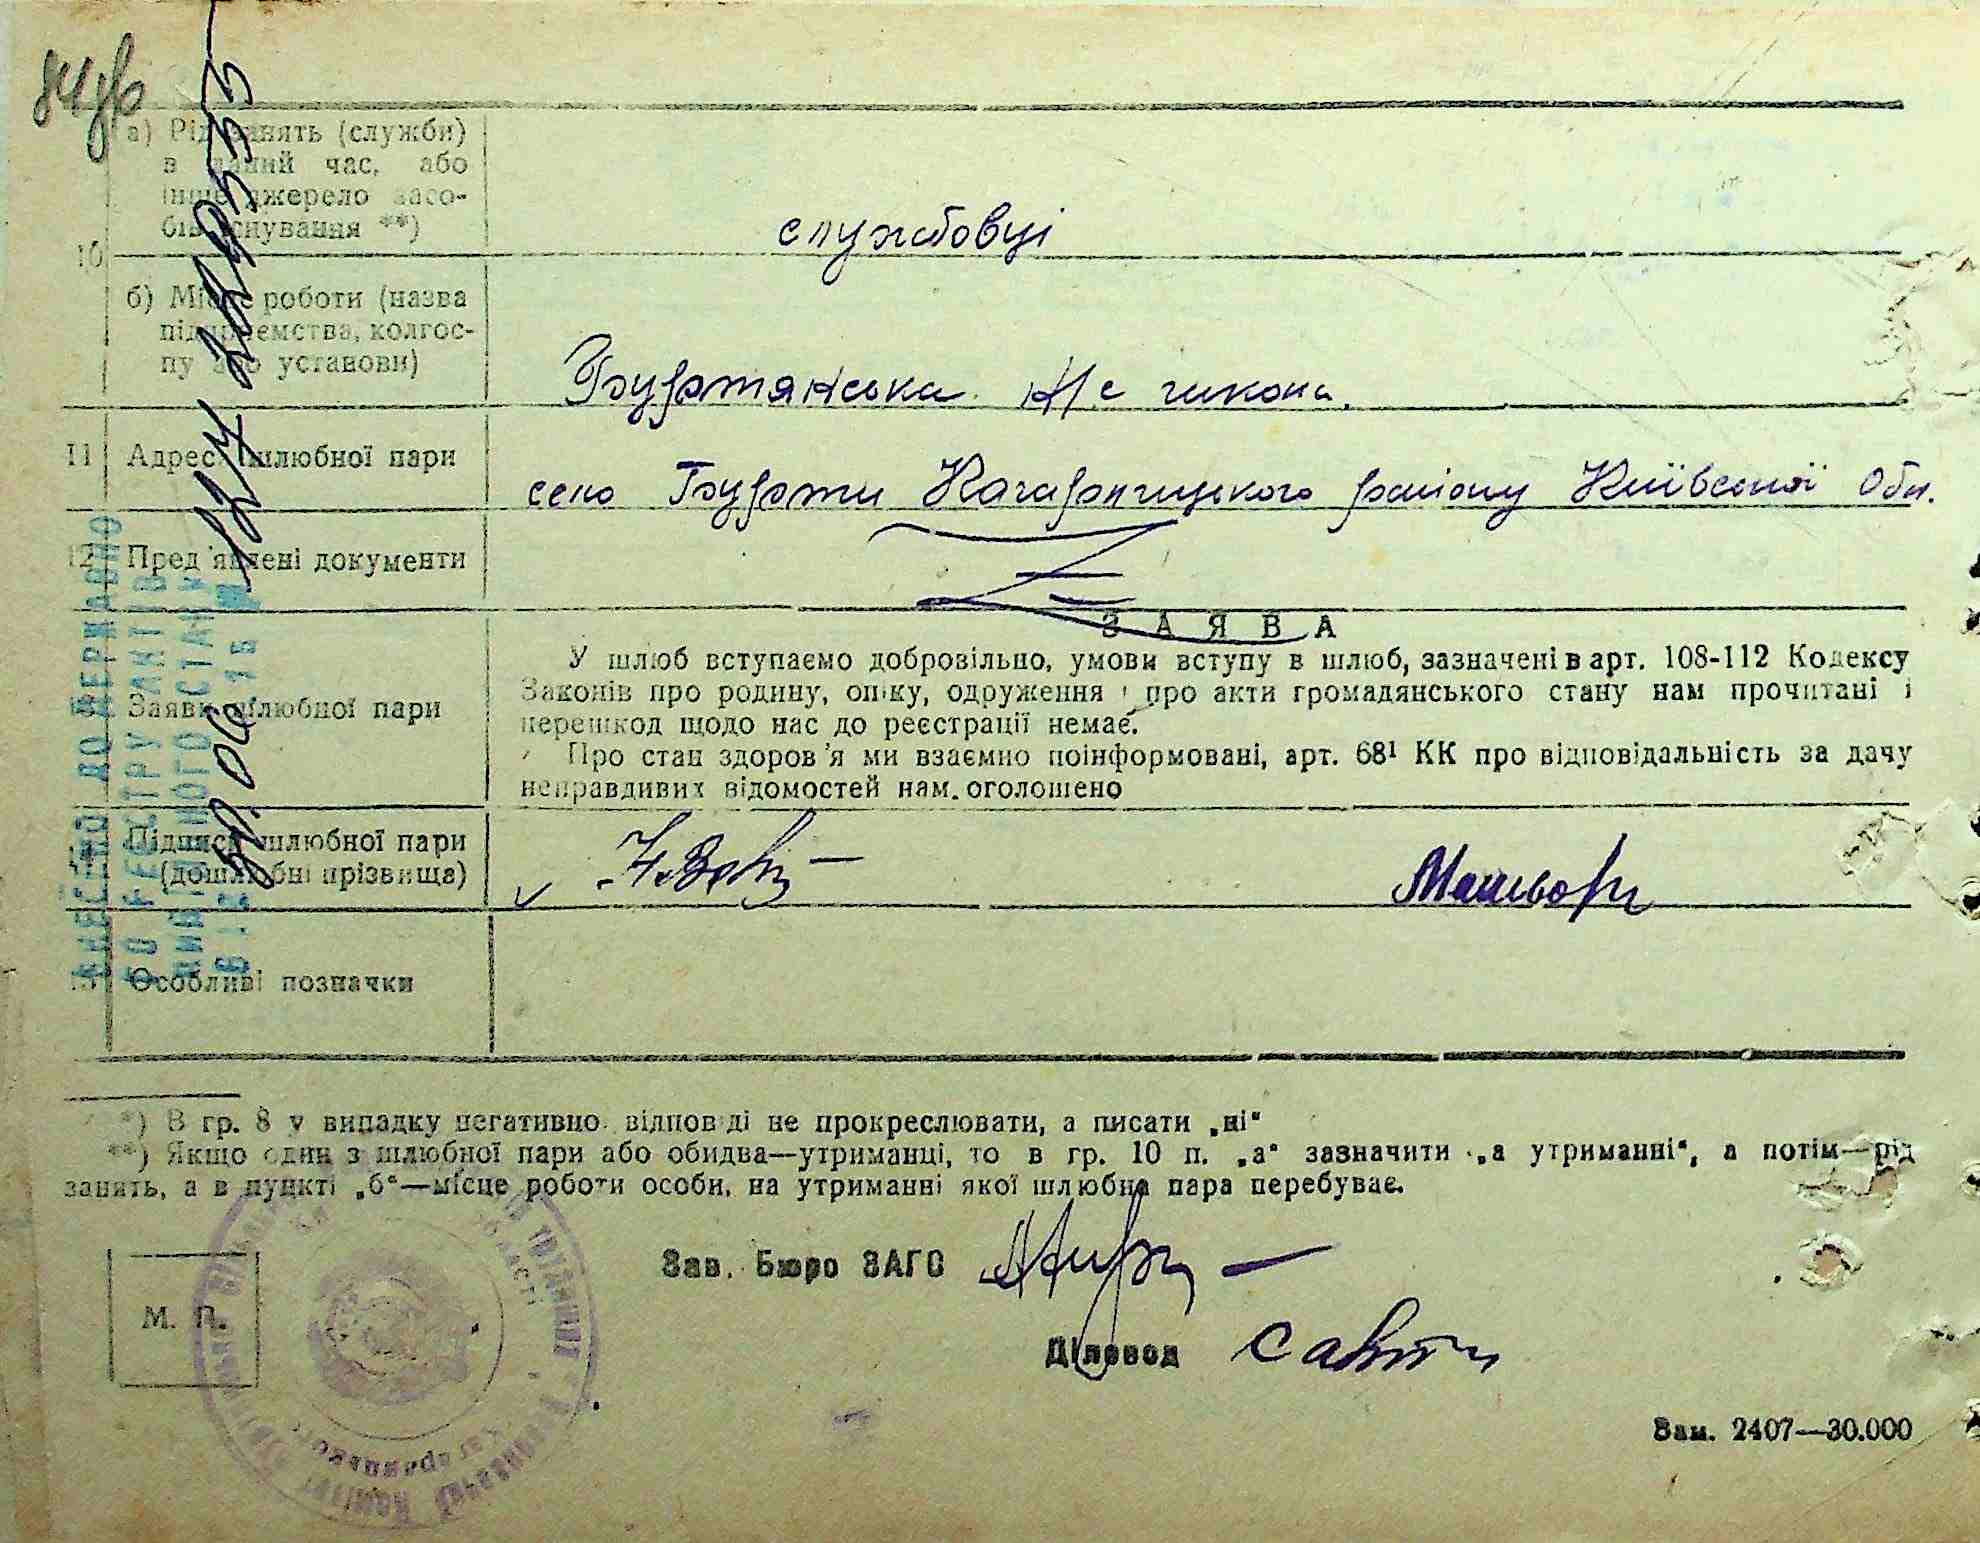 84зв
а) Рід занять (служби)
в даний час, або
інше джерело засо-
бів існування **)
службовці
10
б) Місце роботи (назва
підприємства, колгос-
пу або установи)
Бурtянська н/с школа.
11 Адреса шлюбної пари
село Бурти Кагарлицького району Київської Обл.
12 Пред'явлені документи
ЗАЯВА
Заява шлюбної пари
У шлюб вступаємо добровільно, умови вступу в шлюб, зазначені в арт. 108-112 Кодексу
Законів про родину, опіку, одруження і про акти громадянського стану нам прочитані і
перешкод щодо нас до реєстрації немає.
Про стан здоров'я ми взаємно поінформовані, арт. 68¹ КК про відповідальність за дачу
неправдивих відомостей нам оголошено
Підписи шлюбної пари
(дошлюбні прізвища)
15 Особливі позначки
ВНЕСЕНО ДО ДЕРЖАВНО
ГО РЕЄСТРУ АКТІВ
ЦИВІЛЬНОГО СТАНУ
*) В гр. 8 у випадку негативно. відповіді не прокреслювати, а писати „ні“
**) Якщо один з шлюбної пари або обидва—утриманці, то в гр. 10 п. „а“ зазначити „а утриманні“, а потім—рід
занять, а в пункті „б“—місце роботи особи, на утриманні якої шлюбна пара перебуває.
Зав. Бюро ЗАГС
М. П.
Діловод
Зам. 2407—30.000